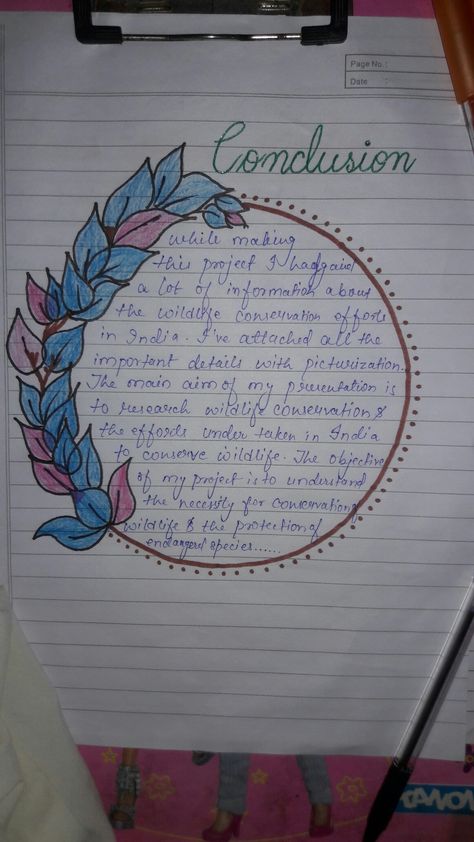 Page No. :
Date :
Conclusion
while making
this project I had gaid
a lot of information about
the wildlife conservation efforts
in India. I've attached all the
important details with picturization.
The main aim of my presentation is
to research wildlife conservation &
the effords under taken in India
to conserve wildlife. The objective
of my project is to understand
the necessity for conservation of
wildlife & the protection of
endangered species......